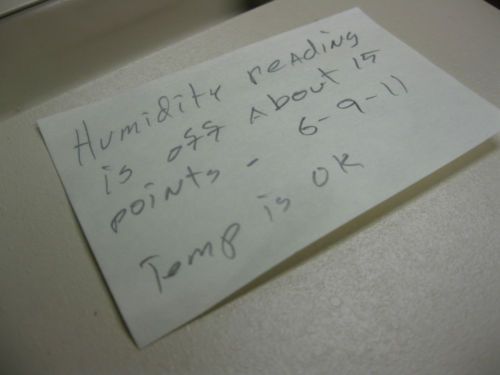 Humidity reading
is off About 15
points - 6-9-11
Temp is OK